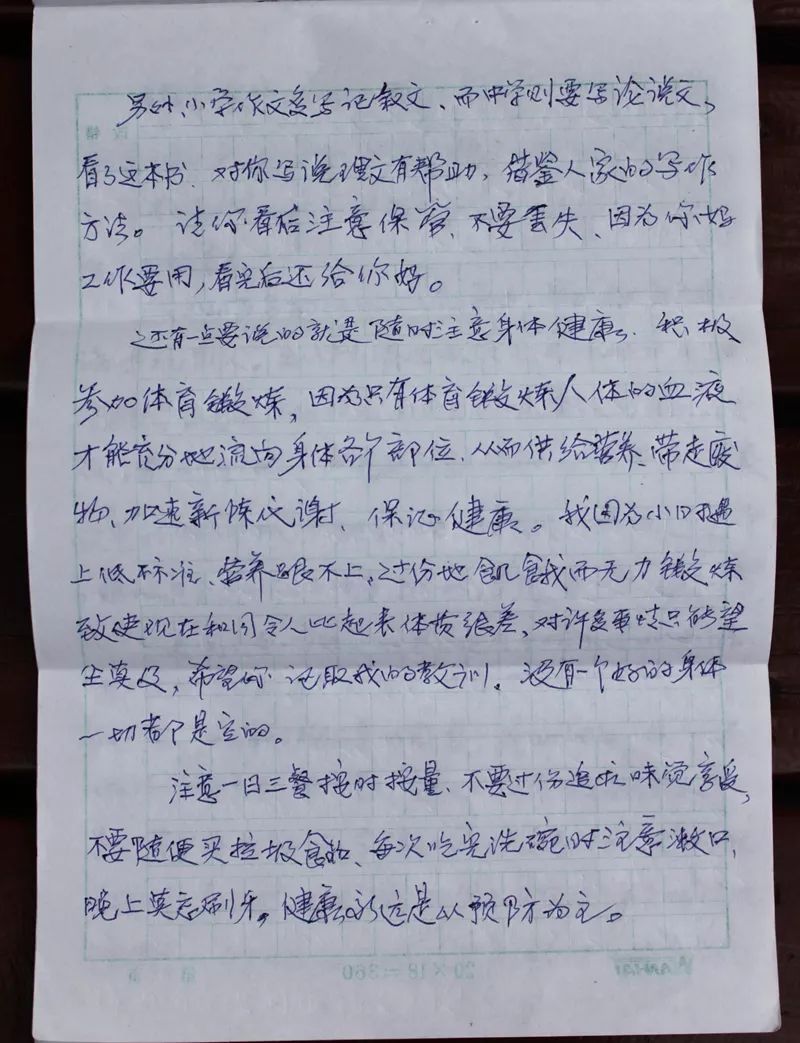 另外、小学作文多写记叙文、而中学则要写论说文,
看了这本书、对你写说理文有帮助,借鉴人家的写作
方法。请你看后注意保管、不要丢失、因为你妈
工作要用,看完后还给你妈。
还有一点要说的就是随时注意身体健康、积极
参加体育锻炼,因为只有体育锻炼人体的血液
才能充分地流向身体各个部位、从而供给营养、带走废
物、加速新陈代谢、保证健康。我因为小时遇
上低标准、营养跟不上,过份地飢餓而无力锻炼
致使现在和同令人比起来体质很差、对许多事情只能望
尘莫及,希望你记取我的教训,没有一个好的身体
一切都是空的。
注意一日三餐按时按量、不要过份追求味觉享受,
不要随便买垃圾食物、每次吃完洗碗时注意漱口,
晚上莫忘刷牙,健康永远是以预防为主。
20×18=360